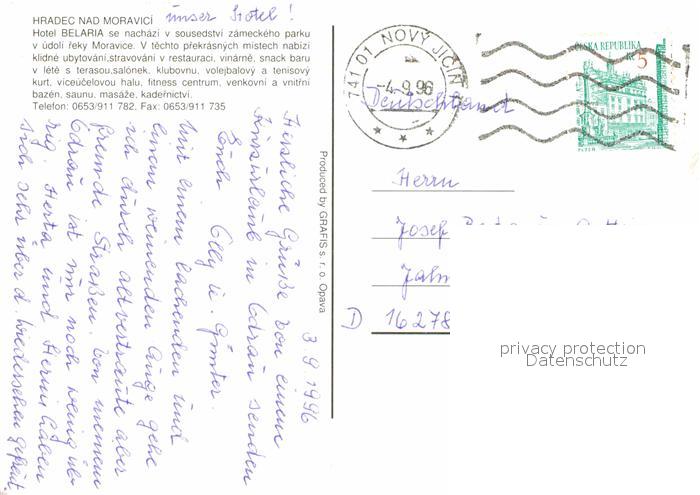 HRADEC NAD MORAVICÍ unser Hotel!
Hotel BELARIA se nachází v sousedství zámeckého parku
v údolí řeky Moravice. V těchto překrásných místech nabízí
klidné ubytování,stravování v restauraci, vinárně, snack baru
v létě s terasou,salónek, klubovnu, volejbalový a tenisový
kurt, víceúčelovou halu, fitness centrum, venkovní a vnitřní
bazén, saunu, masáže, kadeřnictví.
Telefon: 0653/911 782, Fax: 0653/911 735
3 9 1996
Herzliche Grüße von einem
Kurzurlaub in Odrau senden
Euch Elly u. Günter.
Mit einem lachenden und
einem weinenden Auge gehe
ich durch altvertraute aber
fremde Straßen. Von meinem
Odrau ist mir noch wenig üb-
rig. Herta und Hermi haben
sich sehr über d Wiedersehen gefreut.
Produced by GRAFIS s. r. o. Opava
741 01 NOVÝ JIČÍN
-4.9.96
Deutschland
ČESKÁ REPUBLIKA
5
PLZEŇ
Herrn
Josef
Jahn
D 16278
privacy protection
Datenschutz